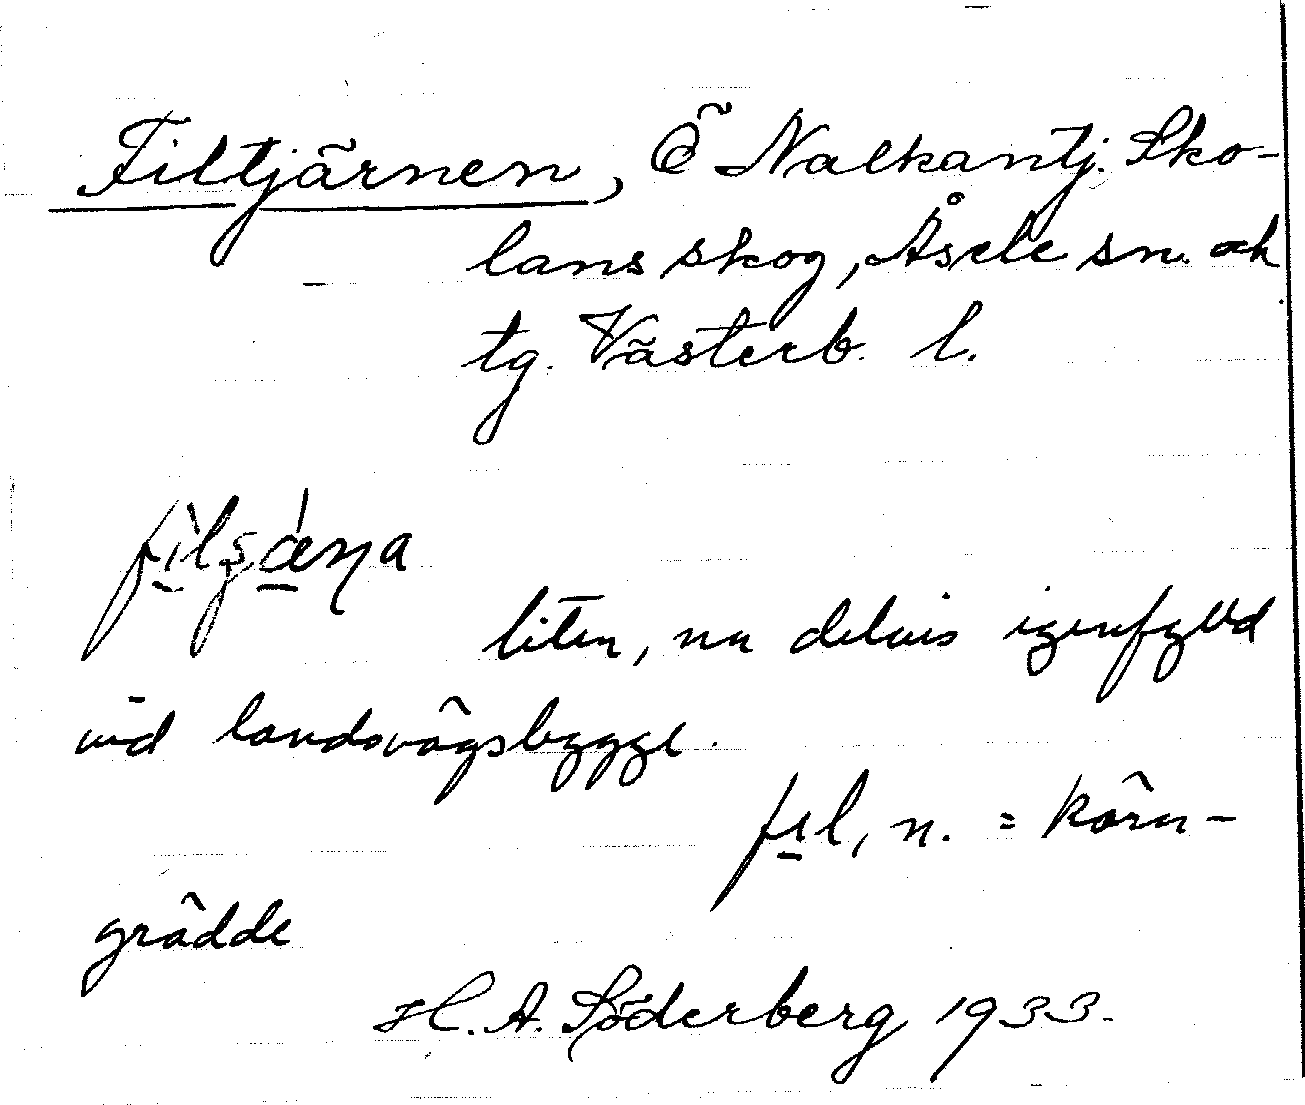 Filtjärnen, Ö Nalkantj. Sko-
lans skog, Åsele sn. och
tg. Västerb. l.
liten, nu delvis igenfylld
vid landsvägsbygge.
fil, n. = kärn-
grädde
H. A. Söderberg 1933.